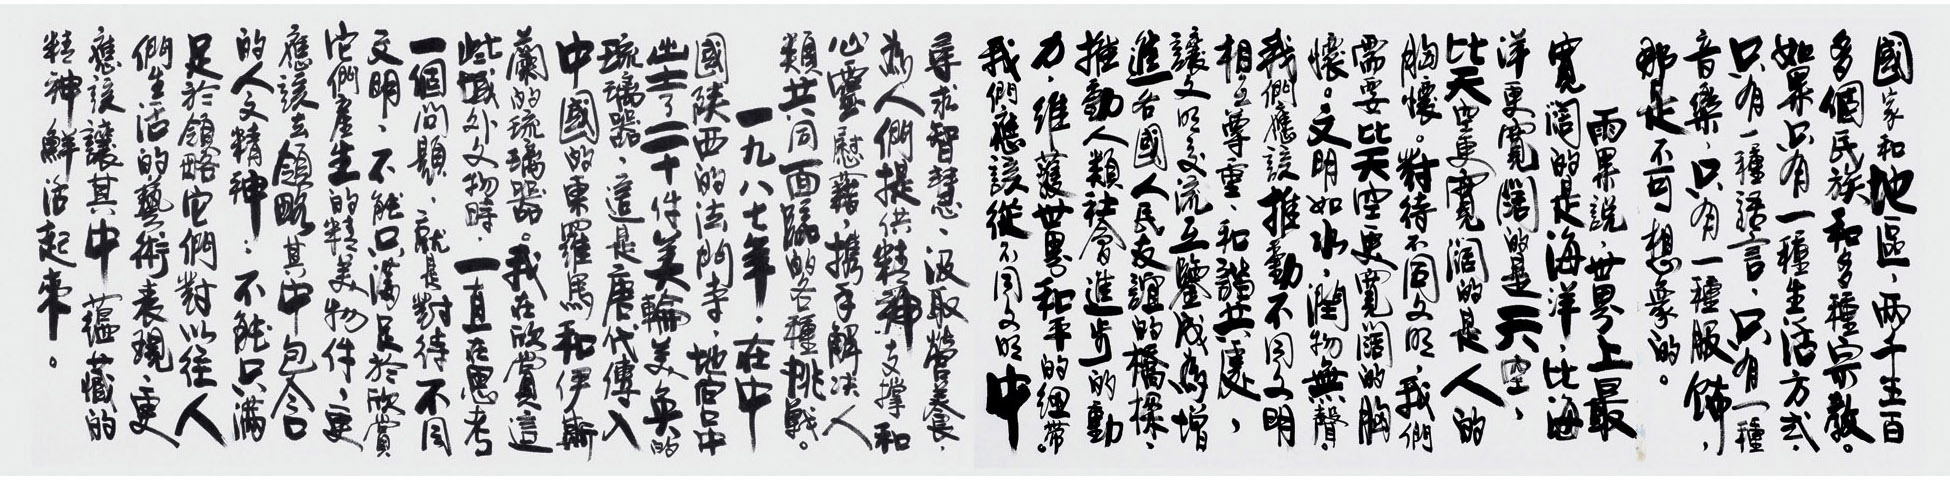 國家和地區，兩千五百
多個民族和多種宗教。
如果只有一種生活方式，
只有一種語言，只有一種
音樂，只有一種服飾，
那是不可想象的。
雨果說，世界上最
寬闊的是海洋，比海
洋更寬闊的是天空，
比天空更寬闊的是人的
胸懷。對待不同文明，我們
需要比天空更寬闊的胸
懷。文明如水，潤物無聲。
我們應該推動不同文明
相互尊重、和諧共處，
讓文明交流互鑒成為增
進各國人民友誼的橋樑、
推動人類社會進步的動
力、維護世界和平的紐帶。
我們應該從不同文明中
尋求智慧、汲取營養，
為人們提供精神支撐和
心靈慰藉，携手解決人
類共同面臨的各種挑戰。
一九八七年，在中
國陝西的法門寺，地宮中
出土了二十件美輪美奐的
琉璃器，這是唐代傳入
中國的東羅馬和伊斯
蘭的琉璃器。我在欣賞這
些域外文物時，一直在思考
一個問題，就是對待不同
文明，不能只滿足於欣賞
它們產生的精美物件，更
應該去領略其中包含
的人文精神；不能只滿
足於領略它們對以往人
們生活的藝術表現，更
應該讓其中蘊藏的
精神鮮活起來。